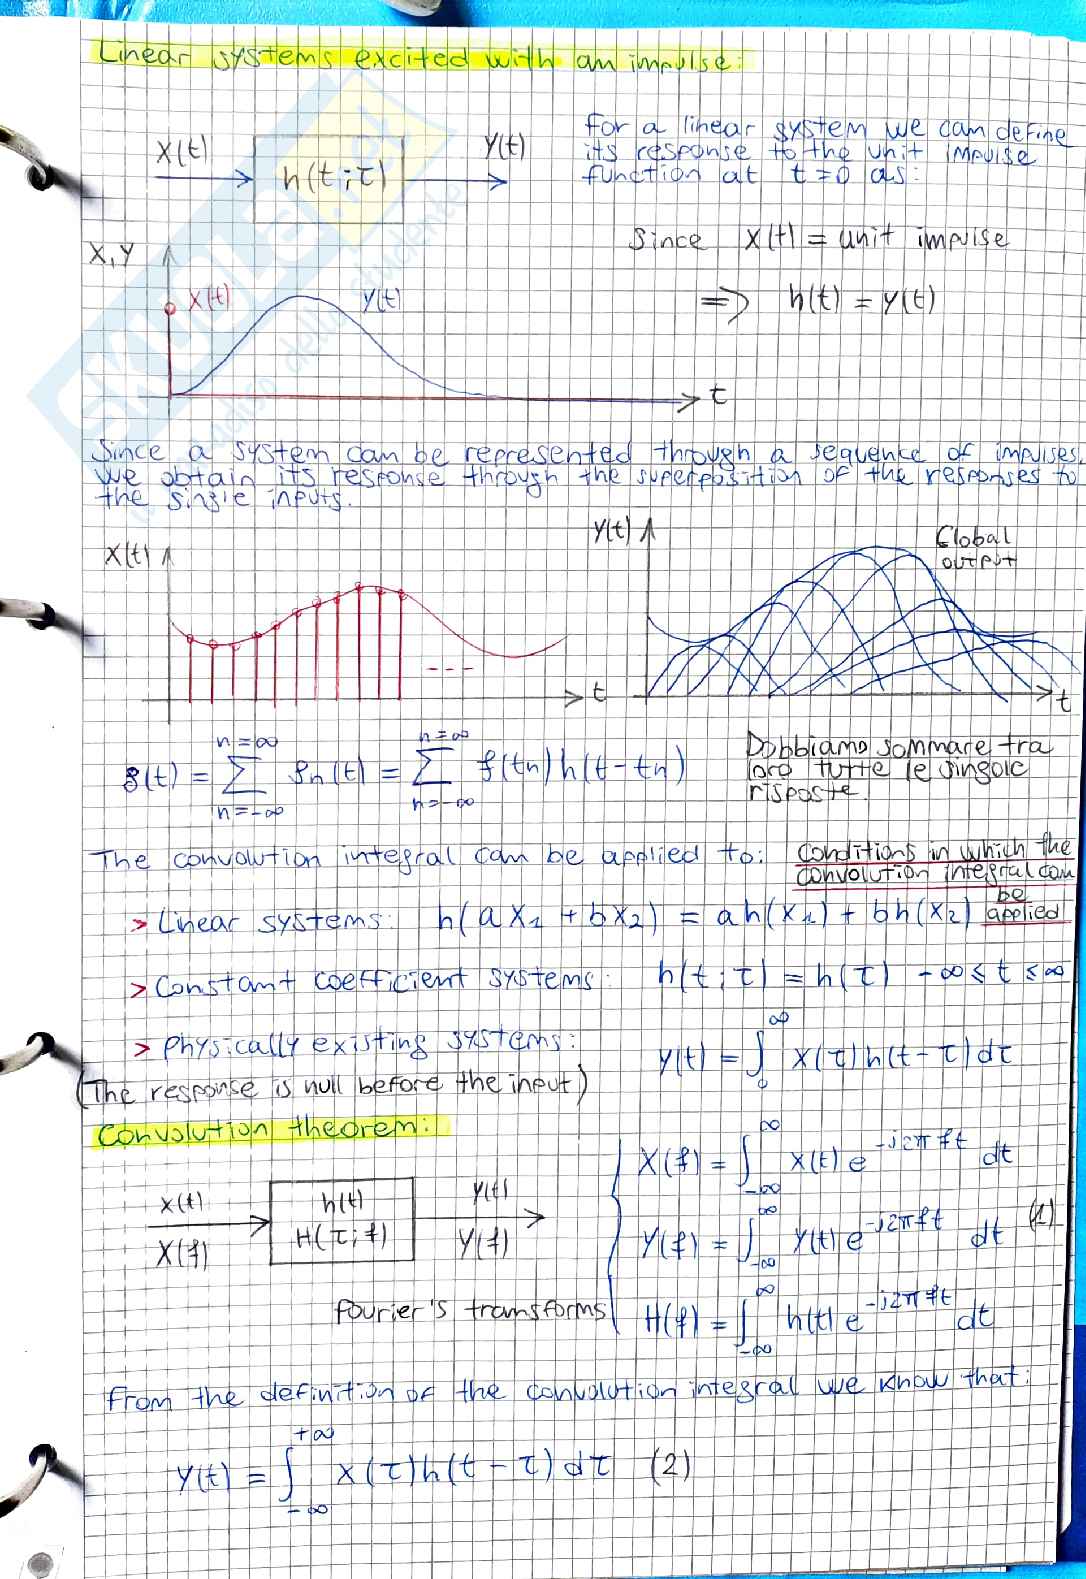 Linear systems excited with an impulse:
For a linear system we can define
its response to the unit impulse
function at t=0 as:
X(t)
h(t;τ)
Y(t)
Since X(t) = unit impulse
⇒ h(t) = Y(t)
X,Y
X(t)
Y(t)
t
SKUOLA.net
Since a system can be represented through a sequence of impulses.
We obtain its response through the superposition of the responses to
the single inputs.
X(t)
t
Y(t)
Global
output
t
g(t) = ∑_{n=-∞}^{n=∞} fn(t) = ∑_{n=-∞}^{n=∞} f(tn)h(t-tn)
Dobbiamo sommare tra
loro tutte le singole
risposte.
The convolution integral can be applied to:
Conditions in which the
convolution integral can
be
applied
> Linear systems: h(ax₁ + bx₂) = ah(x₁) + bh(x₂)
> Constant coefficient systems: h(t;τ) = h(τ) -∞ ≤ t ≤ ∞
> Physically existing systems:
(The response is null before the input)
Y(t) = ∫_0^∞ X(τ)h(t-τ)dτ
Convolution theorem:
X(t)
X(f)
h(t)
H(τ;f)
Y(t)
Y(f)
Fourier's transforms
X(f) = ∫_{-∞}^{∞} X(t)e^{-j2πft} dt
Y(f) = ∫_{-∞}^{∞} Y(t)e^{-j2πft} dt (1)
H(f) = ∫_{-∞}^{∞} h(t)e^{-j2πft} dt
From the definition of the convolution integral we know that:
Y(t) = ∫_{-∞}^{+∞} X(τ)h(t-τ)dτ (2)